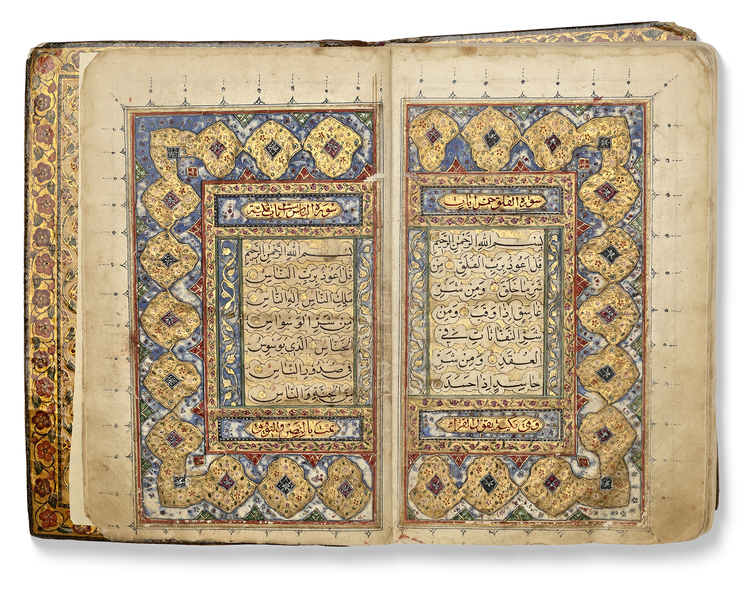 سورة الفلق خمس آيات
بسم الله الرحمن الرحيم
قل اعوذ برب الفلق من
شر ما خلق ومن شر
غاسق اذا وقب ومن
شر النفاثات في
العقد ومن شر
حاسد اذا حسد
سورة الناس ست آيات
بسم الله الرحمن الرحيم
قل اعوذ برب الناس
ملك الناس اله الناس
من شر الوسواس
الخناس الذي يوسوس
في صدور الناس
من الجنة والناس